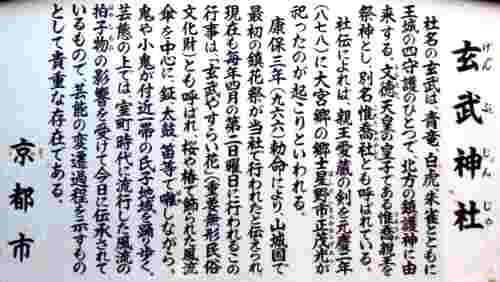 玄武神社
げんぶじんじゃ
社名の玄武は、青竜、白虎、朱雀とともに
王城の四守護のひとつで、北方の鎮護神に由
来する。文徳天皇の皇子である惟喬親王を
祭神とし、別名惟喬社とも呼ばれている。
社伝によれば、親王愛蔵の剣を元慶二年
(八七八)に大宮郷の郷士星野市正茂光が
祀ったのが起こりといわれる。
康保三年(九六六)勅命により、山城国で
最初の鎮花祭が当社で行われたと伝えられ、
現在も毎年四月の第二日曜日に行われるこの
行事は「玄武やすらい花」(重要無形民俗
文化財)とも呼ばれ、桜や椿で飾られた風流
傘を中心に、鉦、太鼓、笛等で囃しながら、
鬼や小鬼が付近一帯の氏子地域を踊り歩く。
芸態の上では、室町時代に流行した風流の
拍子物の影響を受けて今日に伝承されて
いるもので、芸能の変遷過程を示すもの
として貴重な存在である。
京都市